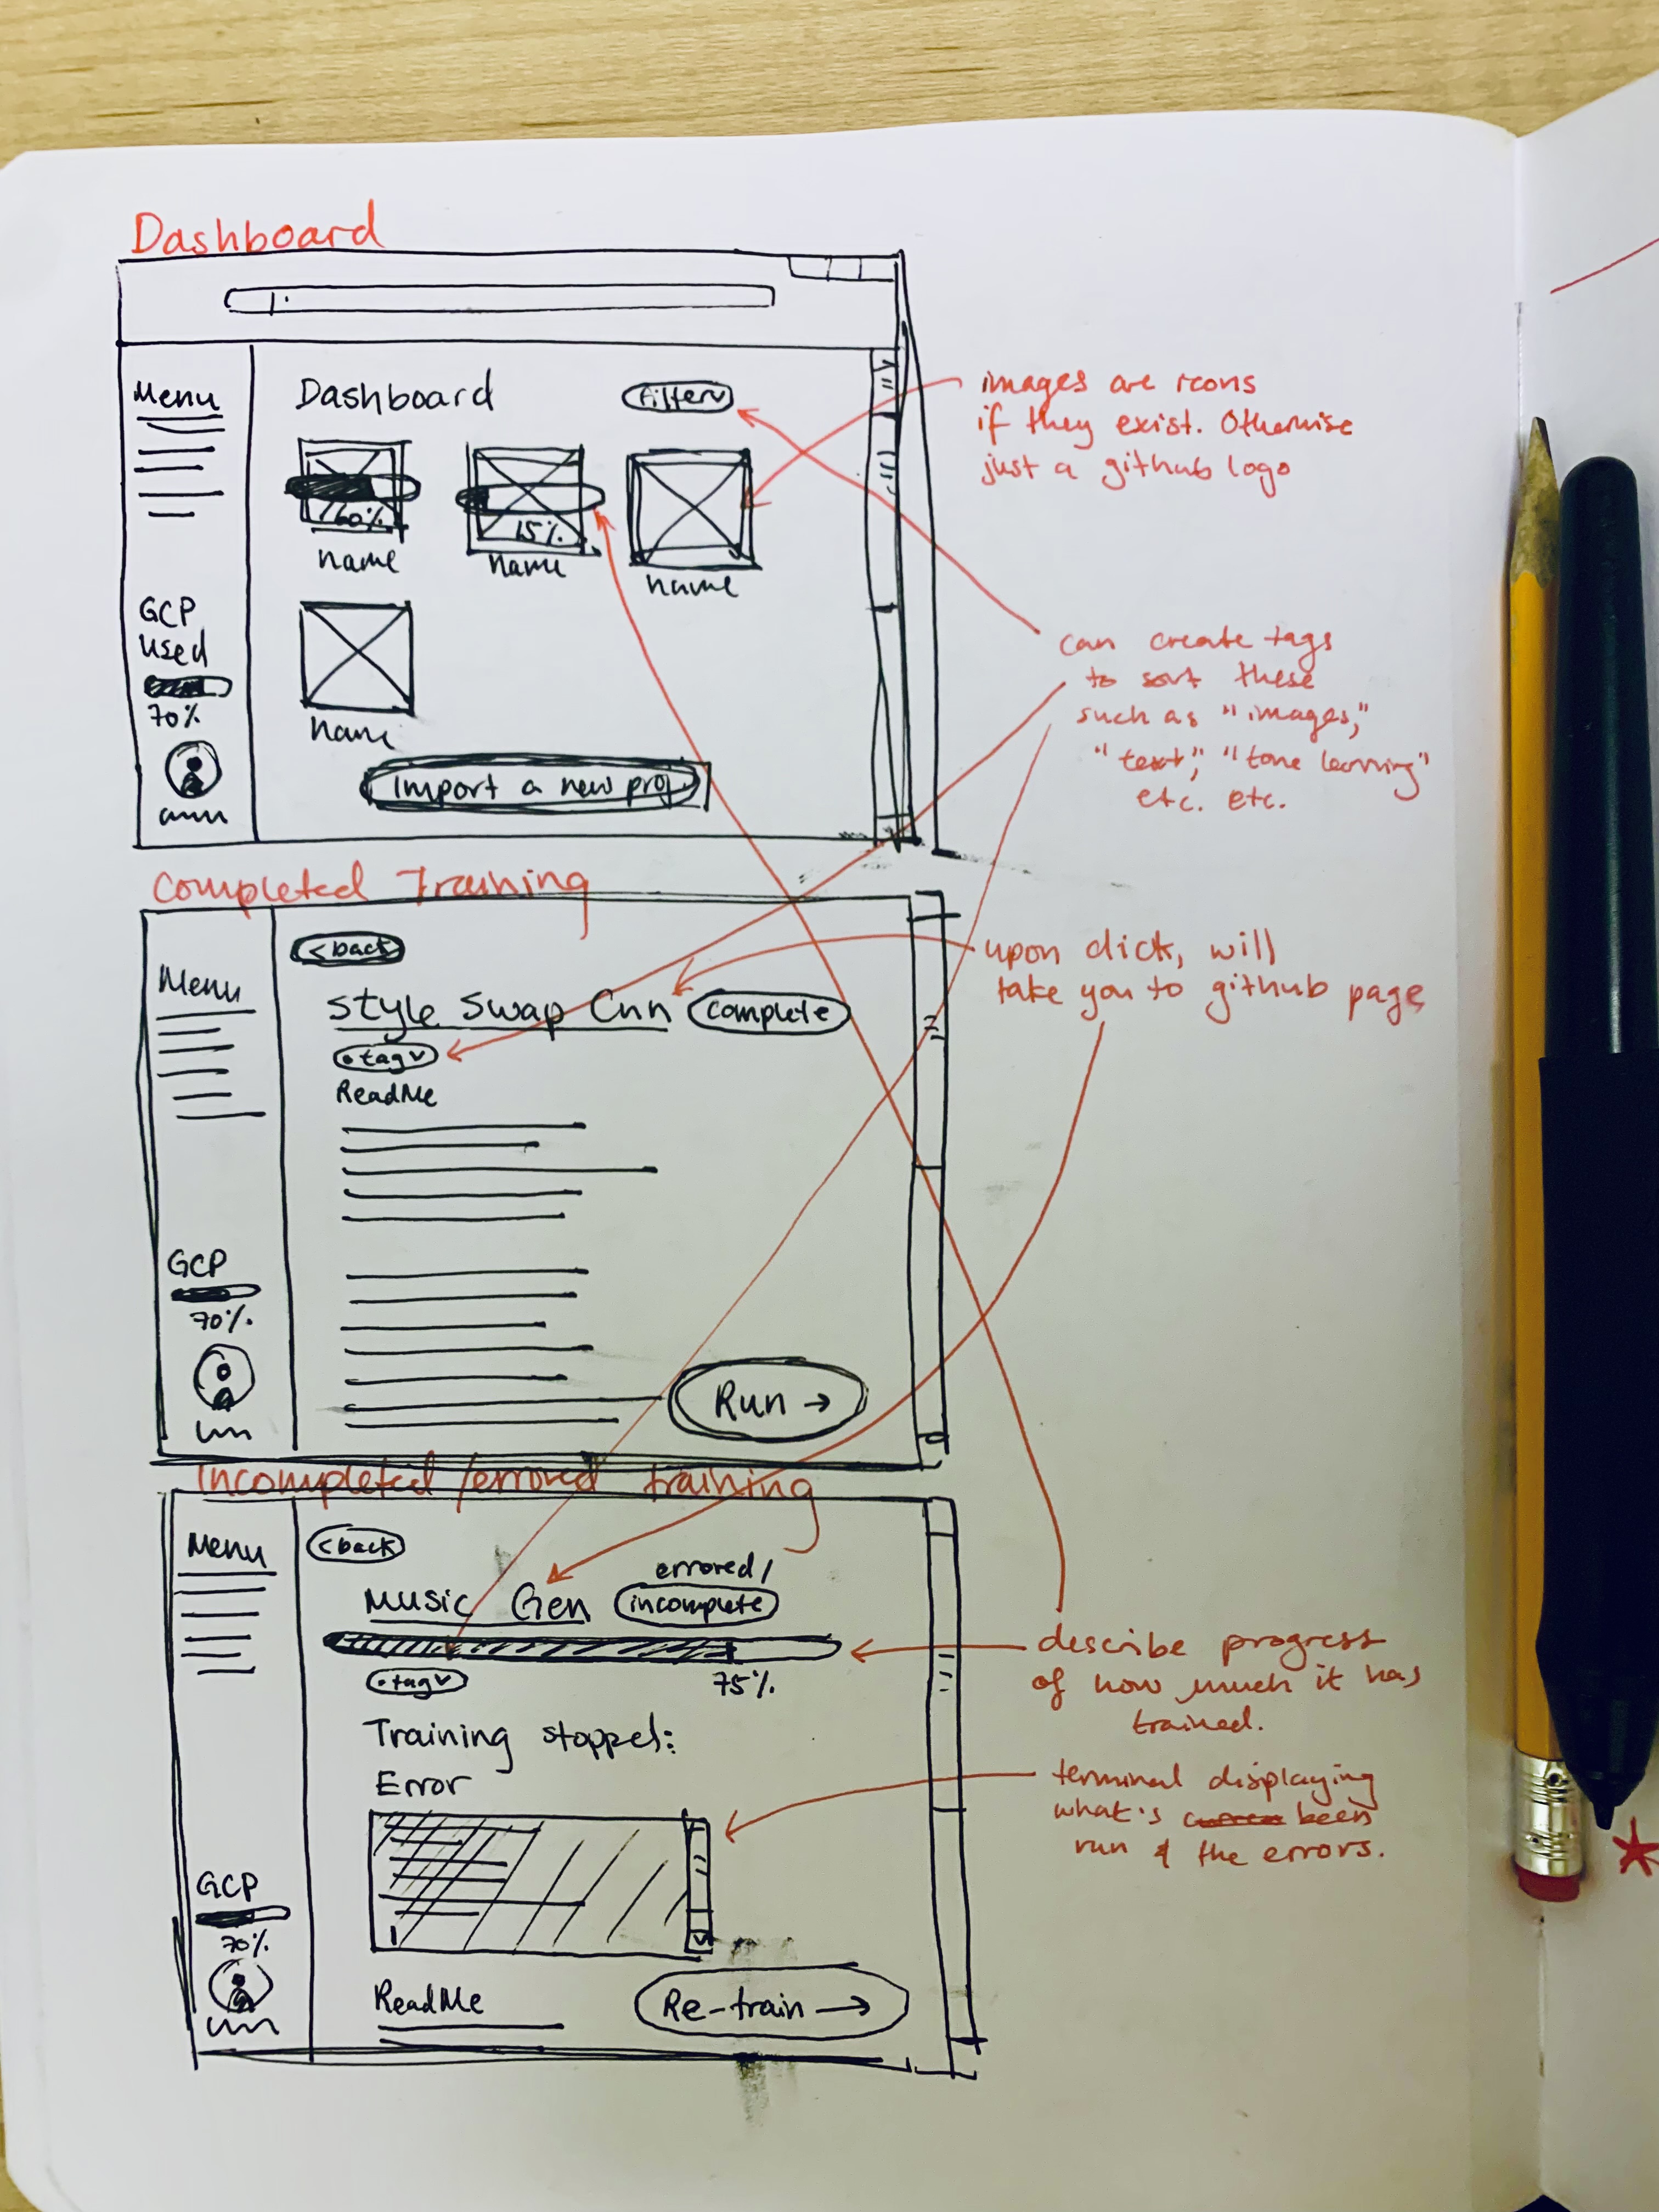 Dashboard
Menu
Dashboard
Filter
60%
name
15%
name
name
name
GCP
used
70%
Import a new proj.
images are icons
if they exist. Otherwise
just a github logo
can create tags
to sort these
such as "images,"
"text", "tone learning"
etc. etc.
Completed Training
Menu
<back
Style Swap Cnn
complete
• tag v
ReadMe
GCP
70%
Run →
upon click, will
take you to github page
Incompleted /errored training
Menu
<back
errored/
Music Gen
incomplete
75%
• tag v
Training stopped:
Error
GCP
70%
ReadMe
Re-train →
describe progress
of how much it has
trained.
terminal displaying
what's been
run & the errors.